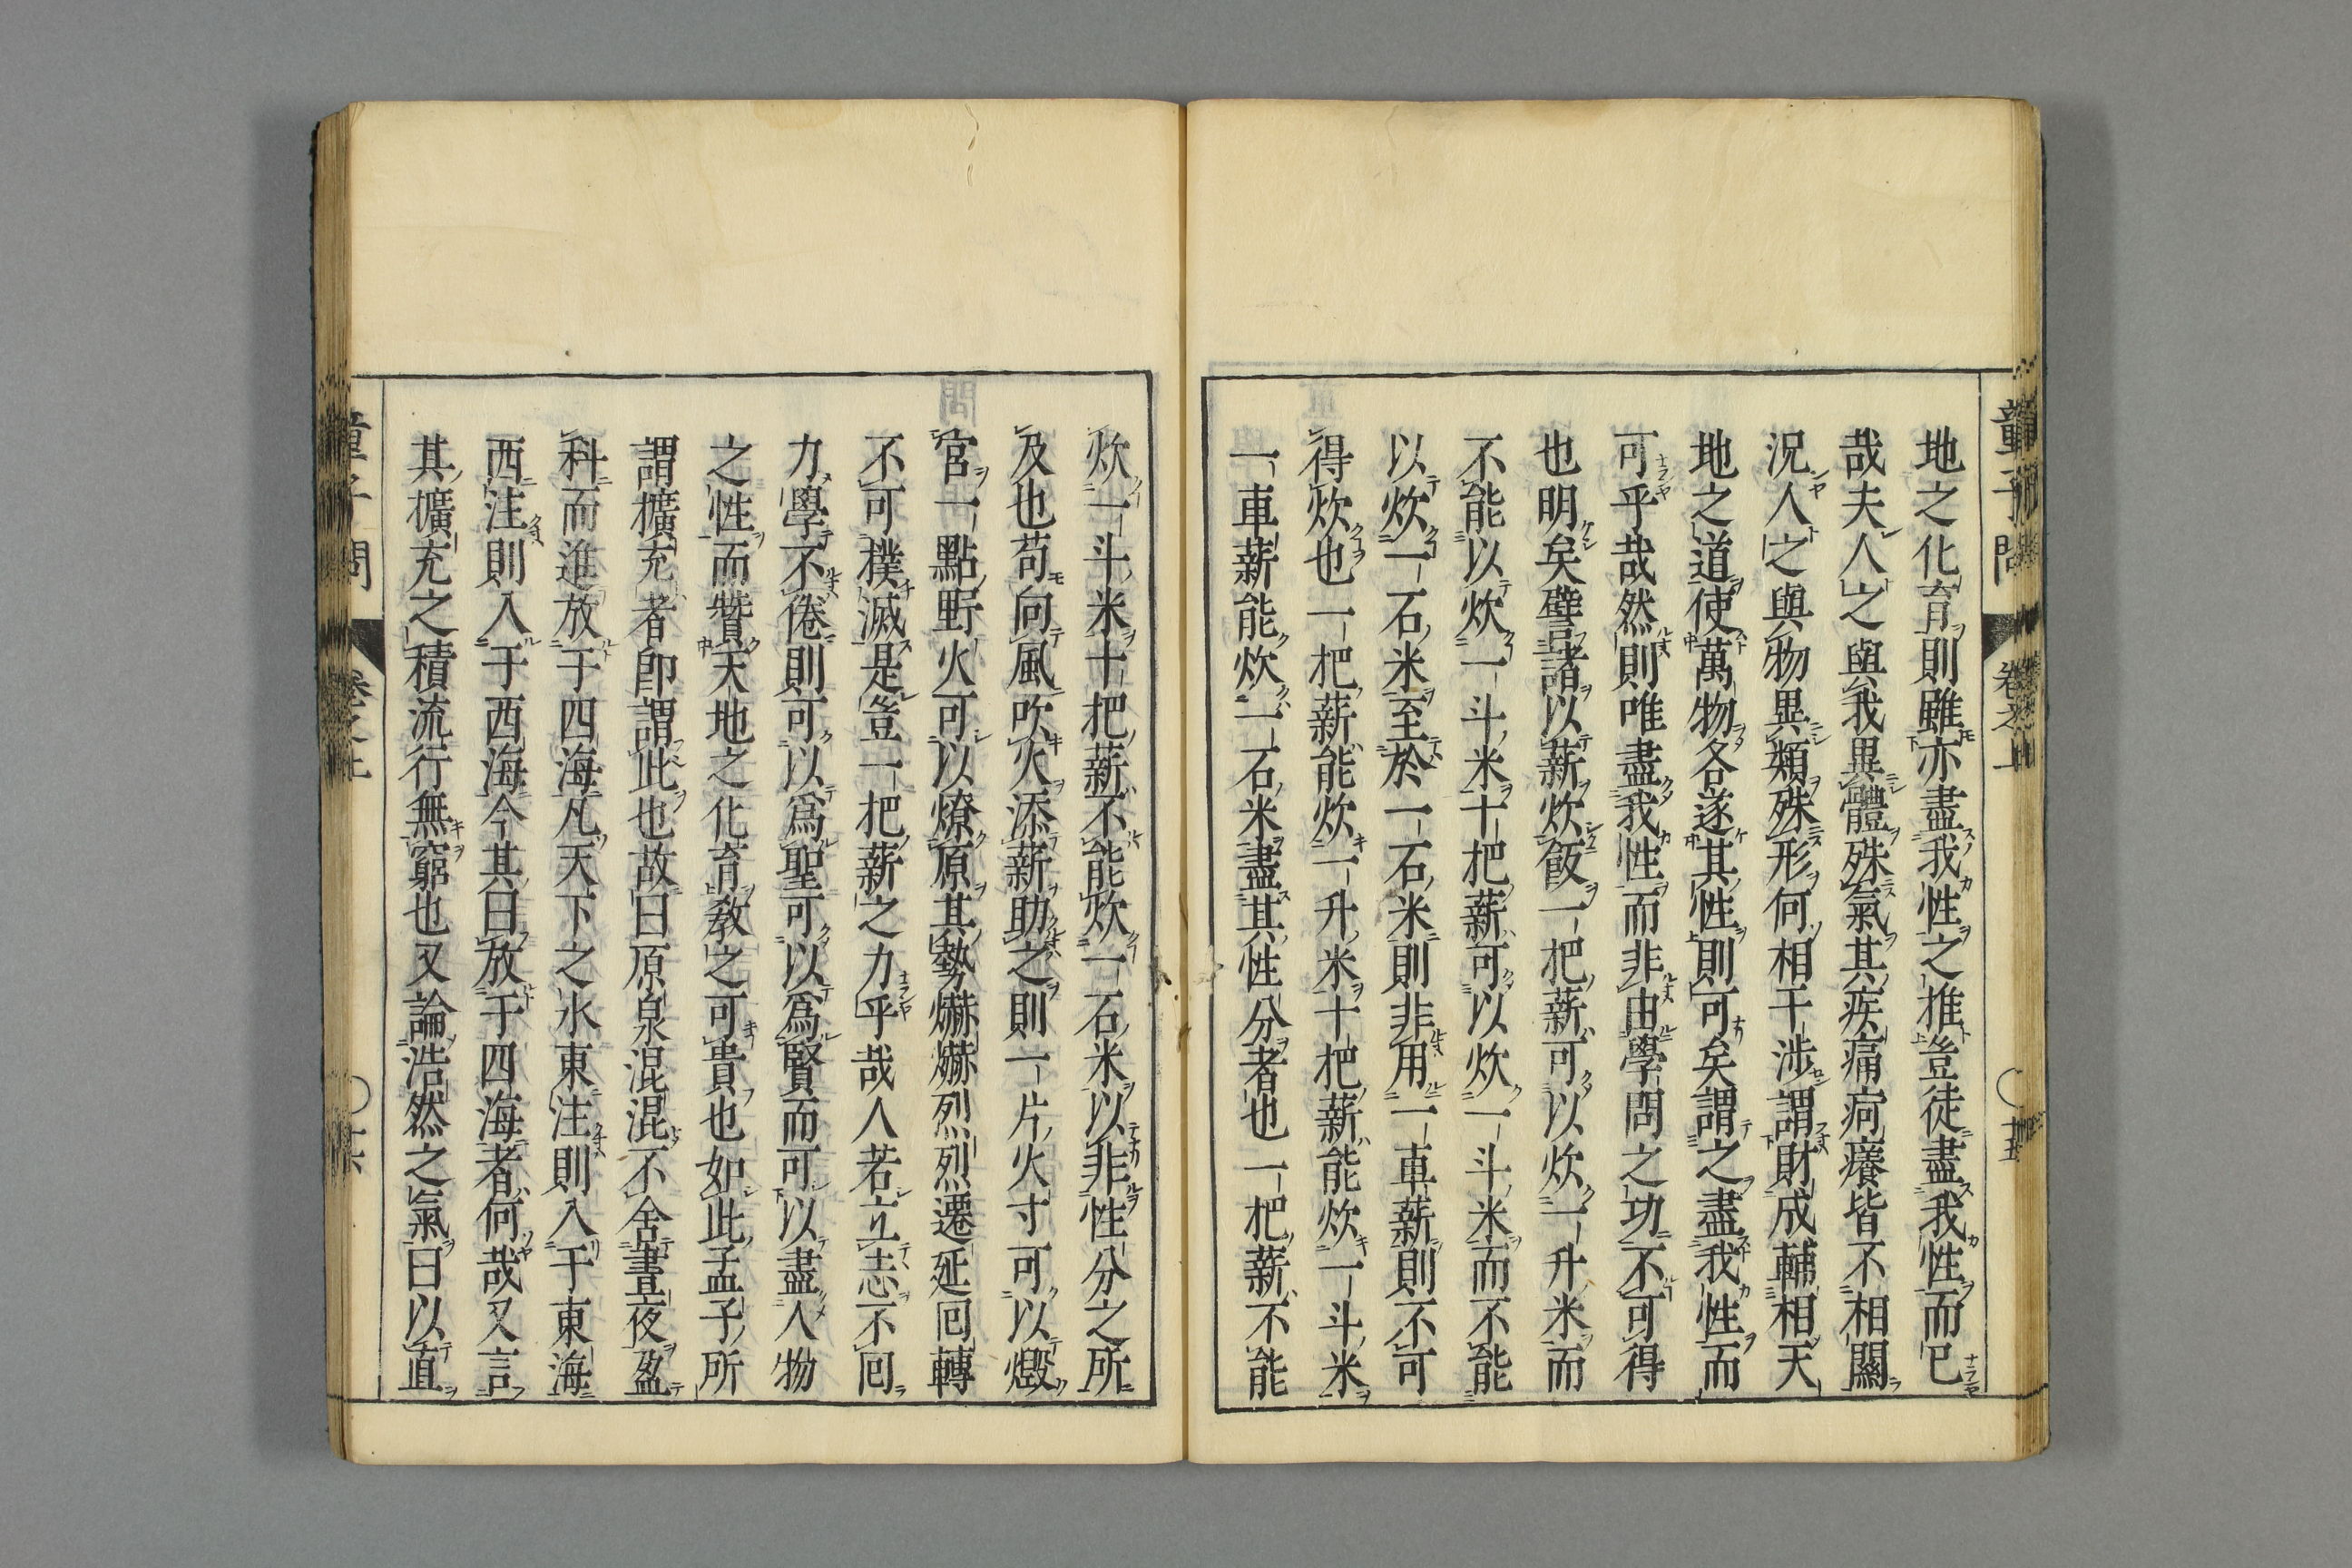 地之化育則雖亦盡我性之推豈徒盡我性而已
哉夫人之與我異體殊氣其疾痛疴癢皆不相關
況人之與物異類殊形何相干涉謂財成輔相天
地之道使萬物各遂其性則可矣謂之盡我性而
可乎哉然則唯盡我性而非由學問之功不可得
也明矣譬諸以薪炊飯一把薪可以炊一升米而
不能以炊一斗米十把薪可以炊一斗米而不能
以炊一石米至於一石米則非用一車薪則不可
得炊也一把薪能炊一升米十把薪能炊一斗米
一車薪能炊一石米盡其性分者也一把薪不能
童子問 卷之上 〇十五
炊一斗米十把薪不能炊一石米以非性分之所
及也苟向風吹火添薪助之則一片火寸可以燬
官一點野火可以燎原其勢爀爀烈烈遷延回轉
不可樸滅是豈一把薪之力乎哉人若立志不回
力學不倦則可以爲聖可以爲賢而可以盡人物
之性而贊天地之化育敎之可貴也如此孟子所
謂擴充者卽謂此也故曰原泉混混不舍晝夜盈
科而進放于四海凡天下之水東注則入于東海
西注則入于西海今其曰放于四海者何哉又言
其擴充之積流行無窮也又論浩然之氣曰以直
童子問